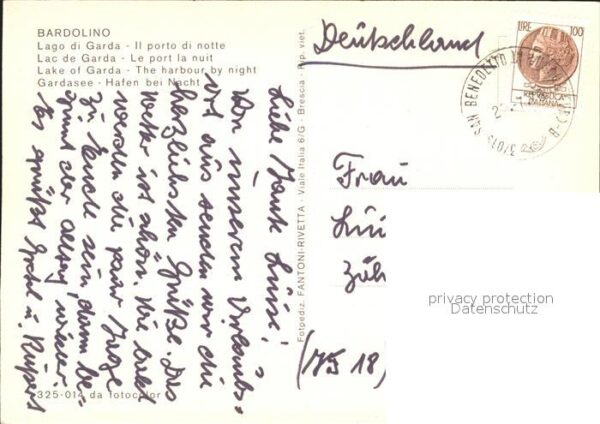 BARDOLINO
Lago di Garda - Il porto di notte
Lac de Garda - Le port la nuit
Lake of Garda - The harbour by night
Gardasee - Hafen bei Nacht
Liebe Tante Luise!
Von unserem Urlaubs-
ort aus senden wir die
herzlichsten Grüße. Das
Wetter ist schön. Wie bald
werden die paar Tage
zu Ende sein, dann be-
ginnt der Alltag wieder.
Es grüßt u. Rupert
325-014 da fotocolor
Fotpediz. FANTONI-RIVETTA - Viale Italia 6/G - Brescia - Rip. viet.
Deutschland
LIRE 100
REPUBBLICA
ITALIANA
SAN BENEDETTO
Frau
privacy protection
Datenschutz